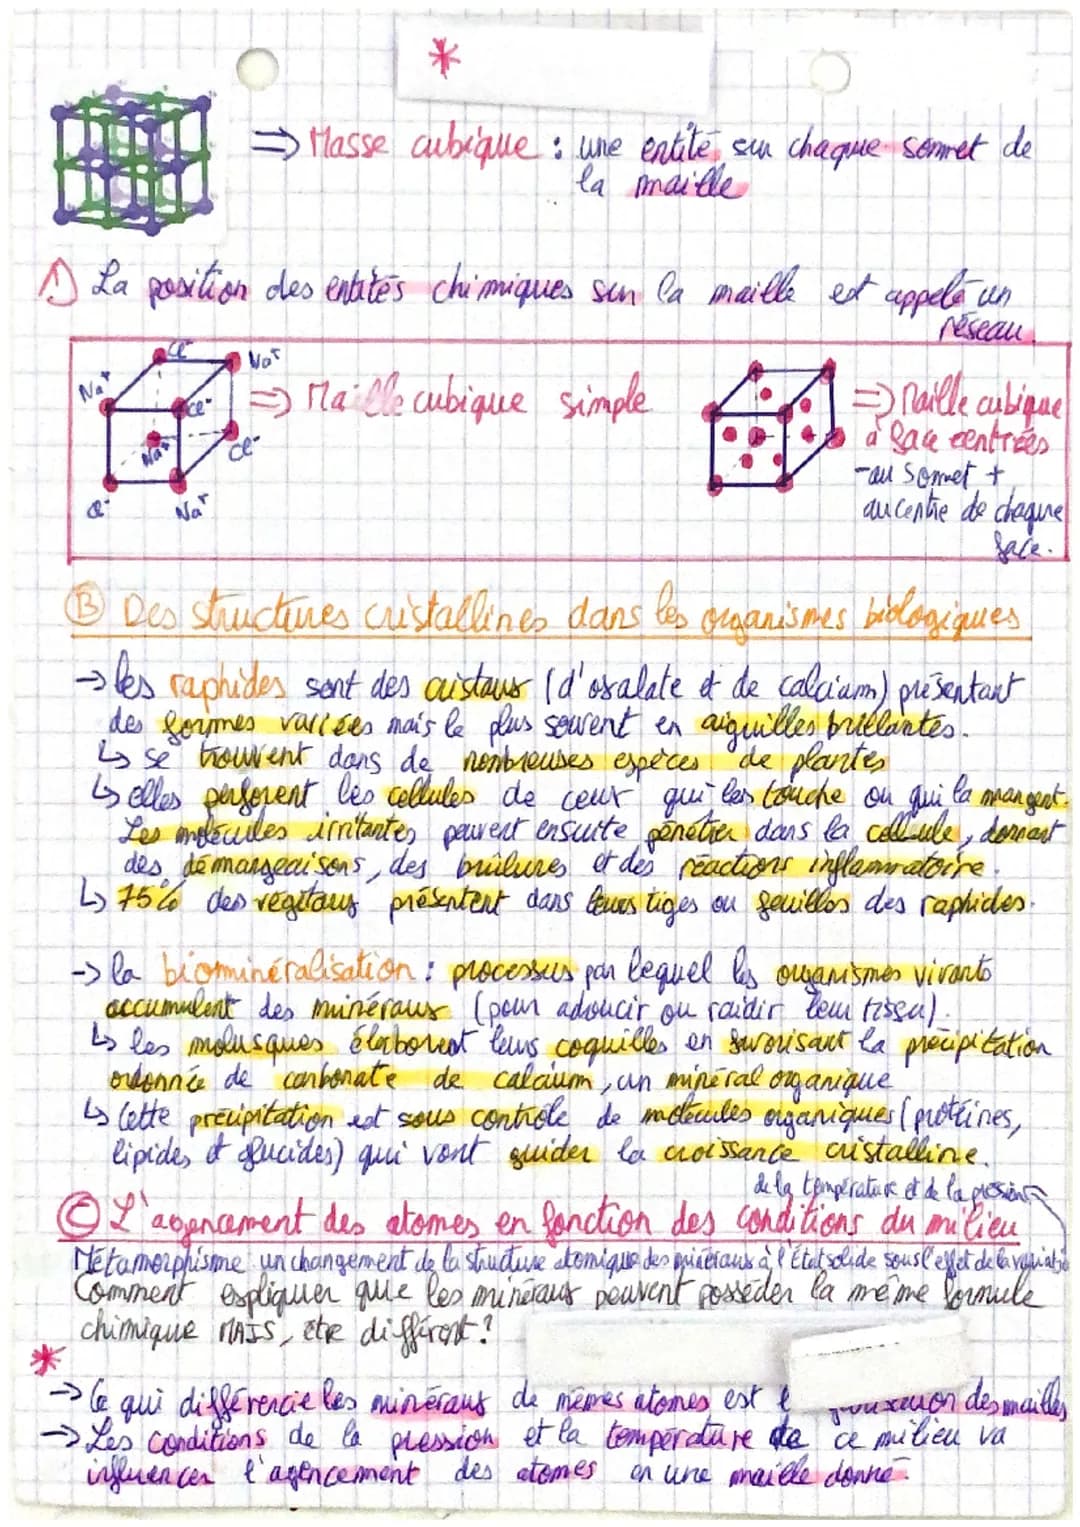 *
⇒ Masse cubique : une entité sur chaque sommet de
la maille
1) La position des entités chimiques sur la maille est appelé un
réseau.
Cl⁻ Na⁺
Na⁺ Cl⁻ ⇒ Maille cubique simple ⇒ Maille cubique
Na⁺ Cl⁻ à face centrées
-au sommet +
Cl⁻ Na⁺ au centre de chaque
face.
B Des structures cristallines dans les organismes biologiques
→ les raphides sont des cristaux (d'oxalate et de calcium) présentant
des formes variées mais le plus souvent en aiguilles brillantes.
↳ se trouvent dans de nombreuses espèces de plantes
↳ elles perforent les cellules de ceux qui les touche ou qui la mangent.
Les molécules irritantes peuvent ensuite pénétrer dans la cellule, donnant
des démangeaisons, des brûlures et des réactions inflammatoire.
↳ 75% des végétaux présentent dans leurs tiges ou feuilles des raphides.
-> la biominéralisation : processus par lequel les organismes vivants
accumulent des minéraux (pour adoucir ou raidir leur tissu).
↳ les molusques élaborent leurs coquilles en favorisant la précipitation
ordonnée de carbonate de calcium, un minéral organique
↳ Cette précipitation est sous contrôle de molécules organiques (protéines,
lipides et glucides) qui vont guider la croissance cristalline.
de la température et de la pression
C L'agencement des atomes en fonction des conditions du milieu
Métamorphisme : un changement de la structure atomique des minéraux à l'état solide sous l'effet de la variation
Comment expliquer que les minéraux peuvent posséder la même formule
chimique MAIS, être différent ?
*
→ Ce qui différencie les minéraux de mêmes atomes est des mailles
→ Les conditions de la pression et la température de ce milieu va
influencer l'agencement des atomes en une maille donné.